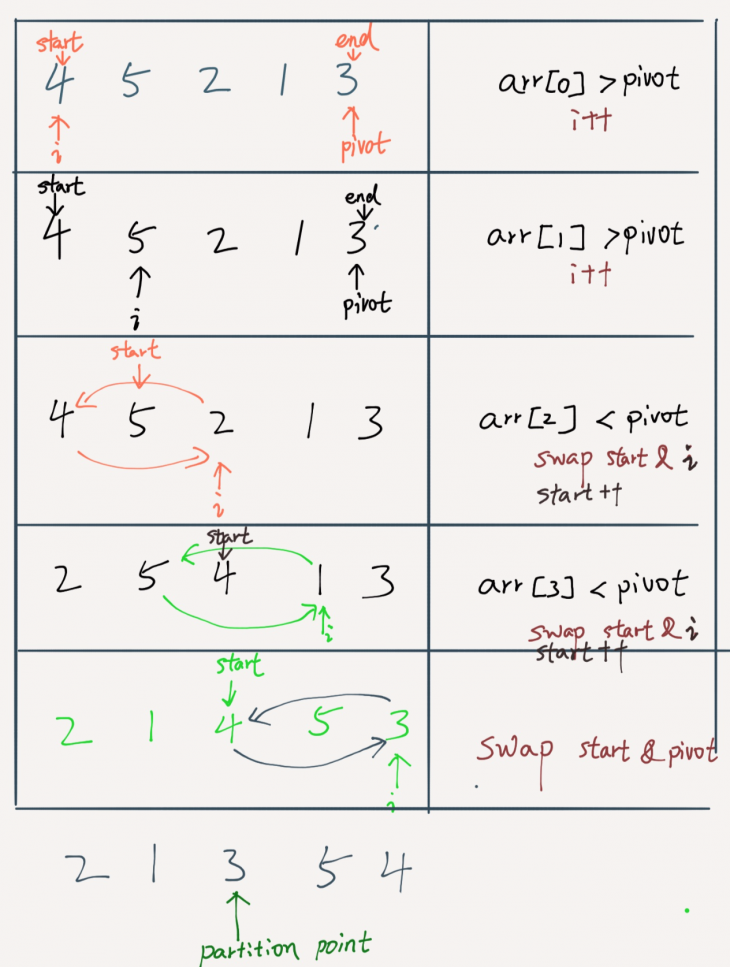 start end
4 5 2 1 3
i pivot
arr[0] > pivot
i++
start end
4 5 2 1 3
i pivot
arr[1] > pivot
i++
start
4 5 2 1 3
i
arr[2] < pivot
swap start & i
start++
start
2 5 4 1 3
i
arr[3] < pivot
swap start & i
start++
start
2 1 4 5 3
i
swap start & pivot
2 1 3 5 4
partition point